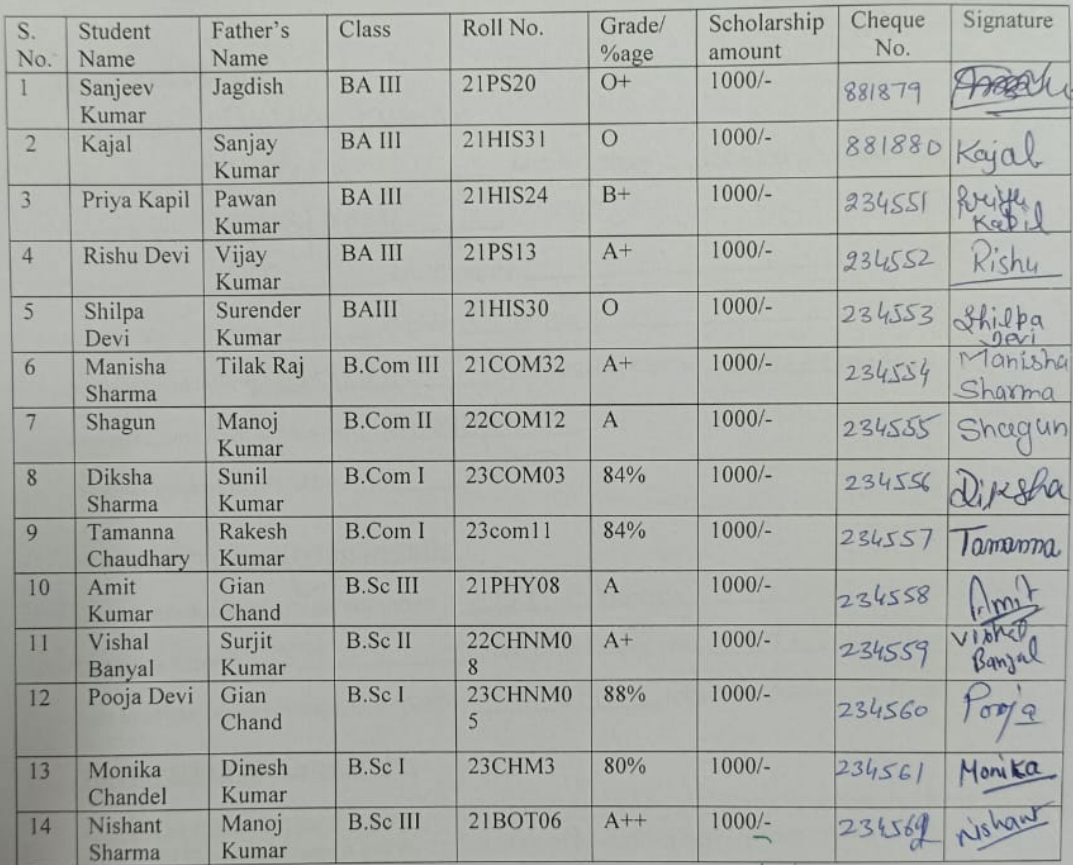 S. No. Student Name Father's Name Class Roll No. Grade/ %age Scholarship amount Cheque No. Signature
1 Sanjeev Kumar Jagdish BA III 21PS20 O+ 1000/- 881879
2 Kajal Sanjay Kumar BA III 21HIS31 O 1000/- 881880 Kajal
3 Priya Kapil Pawan Kumar BA III 21HIS24 B+ 1000/- 234551 Priya Kapil
4 Rishu Devi Vijay Kumar BA III 21PS13 A+ 1000/- 234552 Rishu
5 Shilpa Devi Surender Kumar BAIII 21HIS30 O 1000/- 234553 Shilpa Devi
6 Manisha Sharma Tilak Raj B.Com III 21COM32 A+ 1000/- 234554 Manisha Sharma
7 Shagun Manoj Kumar B.Com II 22COM12 A 1000/- 234555 Shagun
8 Diksha Sharma Sunil Kumar B.Com I 23COM03 84% 1000/- 234556 Diksha
9 Tamanna Chaudhary Rakesh Kumar B.Com I 23com11 84% 1000/- 234557 Tamanna
10 Amit Kumar Gian Chand B.Sc III 21PHY08 A 1000/- 234558 Amit
11 Vishal Banyal Surjit Kumar B.Sc II 22CHNM08 A+ 1000/- 234559 Vishal Banyal
12 Pooja Devi Gian Chand B.Sc I 23CHNM05 88% 1000/- 234560 Pooja
13 Monika Chandel Dinesh Kumar B.Sc I 23CHM3 80% 1000/- 234561 Monika
14 Nishant Sharma Manoj Kumar B.Sc III 21BOT06 A++ 1000/- 234562 Nishant